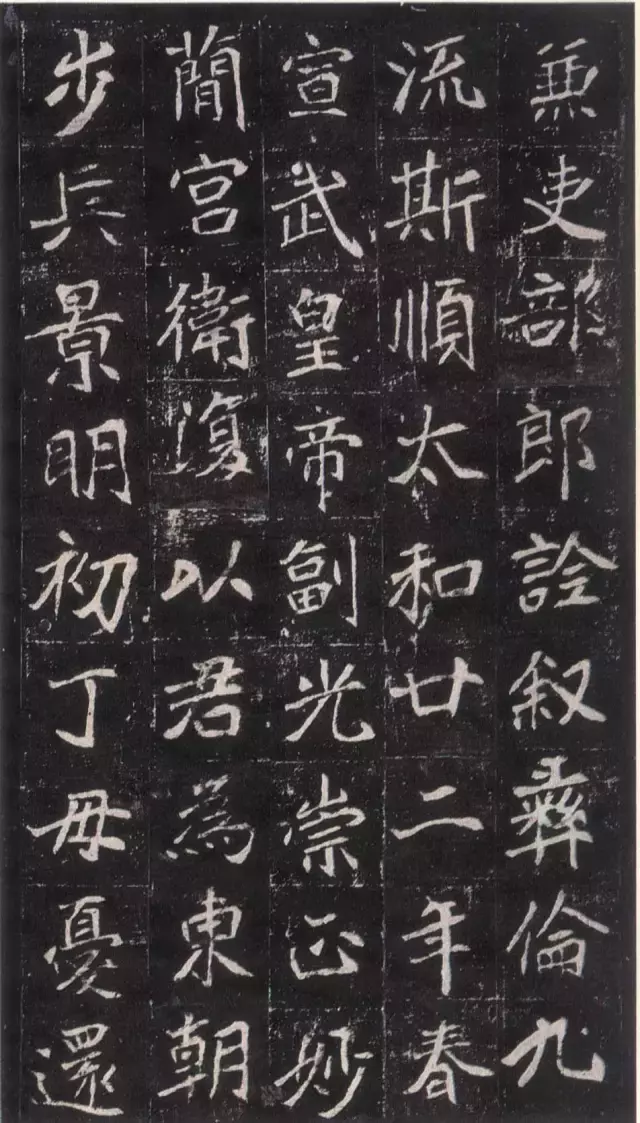 兼吏部郎詮叙彝倫九
流斯順太和廿二年春
宣武皇帝副光崇正妙
簡宮衛復以君為東朝
步兵景明初丁母憂還